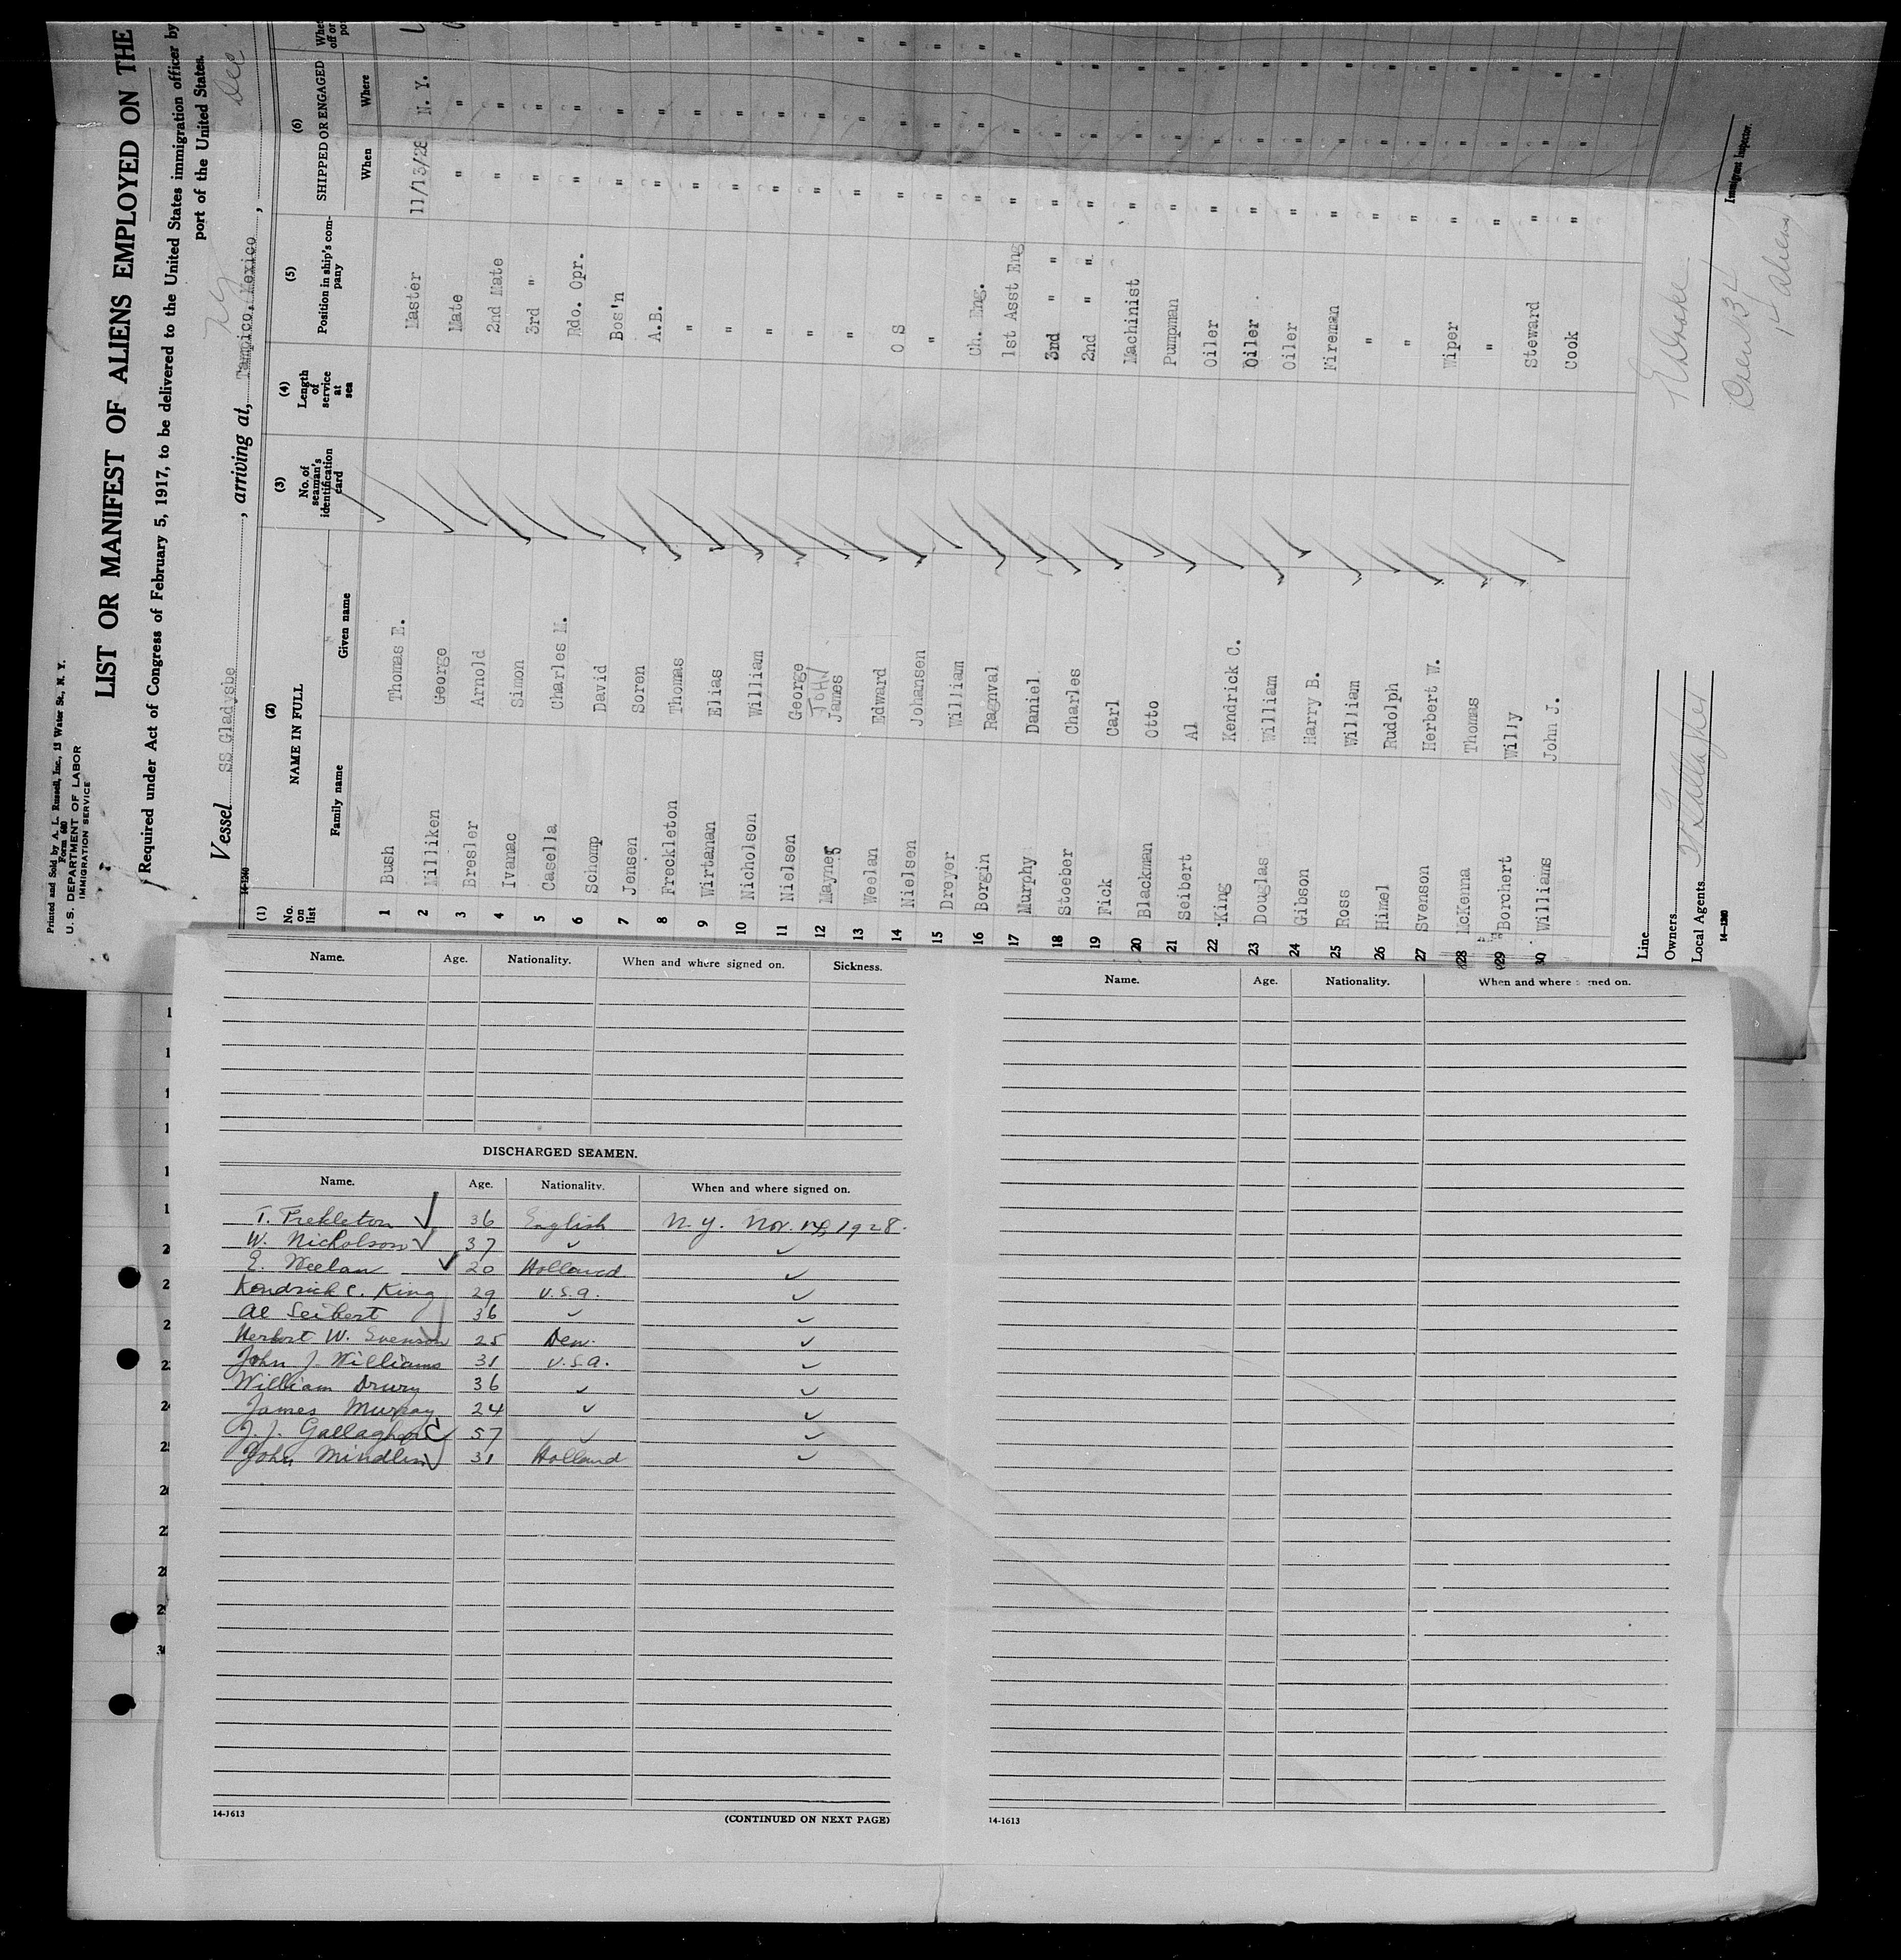 Printed and Sold by A. L. Russell, Inc., 13 Water St., N. Y.
Form 680
U. S. DEPARTMENT OF LABOR
IMMIGRATION SERVICE
LIST OR MANIFEST OF ALIENS EMPLOYED ON THE
Required under Act of Congress of February 5, 1917, to be delivered to the United States immigration officer by
port of the United States.
Vessel SS Gladysbe , arriving at, Tampico, Mexico , Dec
NY
14-1240
(1) (2) (3) (4) (5) (6)
No. on list NAME IN FULL No. of seaman's identification card Length of service at sea Position in ship's company SHIPPED OR ENGAGED
Family name Given name When Where
1 Bush Thomas E. Master 11/13/28 N. Y.
2 Milliken George Mate " "
3 Bresler Arnold 2nd Mate " "
4 Ivanac Simon 3rd " " "
5 Casella Charles M. Rdo. Opr. " "
6 Schomp David Bos'n " "
7 Jensen Soren A.B. " "
8 Freckleton Thomas " " "
9 Wirtanan Elias " " "
10 Nicholson William " " "
11 Nielsen George " " "
JOHN
12 Mayner James " " "
13 Weelan Edward O S " "
14 Nielsen Johansen " " "
15 Dreyer William Ch. Eng. " "
16 Borgin Ragnval 1st Asst Eng " "
17 Murphy Daniel 3nd " " " "
18 Stoeber Charles 2nd " " " "
19 Fick Carl Machinist " "
20 Blackman Otto Pumpman " "
21 Seibert Al Oiler " "
22 King Kendrick C. Oiler " "
23 Douglas William Oiler " "
24 Gibson Harry B. Fireman " "
25 Ross William " " "
26 Himel Rudolph " " "
27 Svenson Herbert W. Wiper " "
28 McKenna Thomas " " "
29 Borchert Willy Steward " "
30 Williams John J. Cook " "
Line
Owners
Local Agents
14-1240
Crew 34
Immigrant Inspector.
Name. Age. Nationality. When and where signed on. Sickness.
DISCHARGED SEAMEN.
Name. Age. Nationality. When and where signed on.
T. Frekleton 36 English N. Y. Nov. 14, 1928.
W. Nicholson 37
E. Weelan 20 Holland
Kendrick C. King 29 U.S.A.
Al Seibert 36
Herbert W. Svenson 25 Den.
John J. Williams 31 U.S.A.
William Drury 36
James Murpay 24
J. J. Gallagher 57
John Mindlin 31 Holland
14-1613 (CONTINUED ON NEXT PAGE)
Name. Age. Nationality. When and where signed on.
14-1613